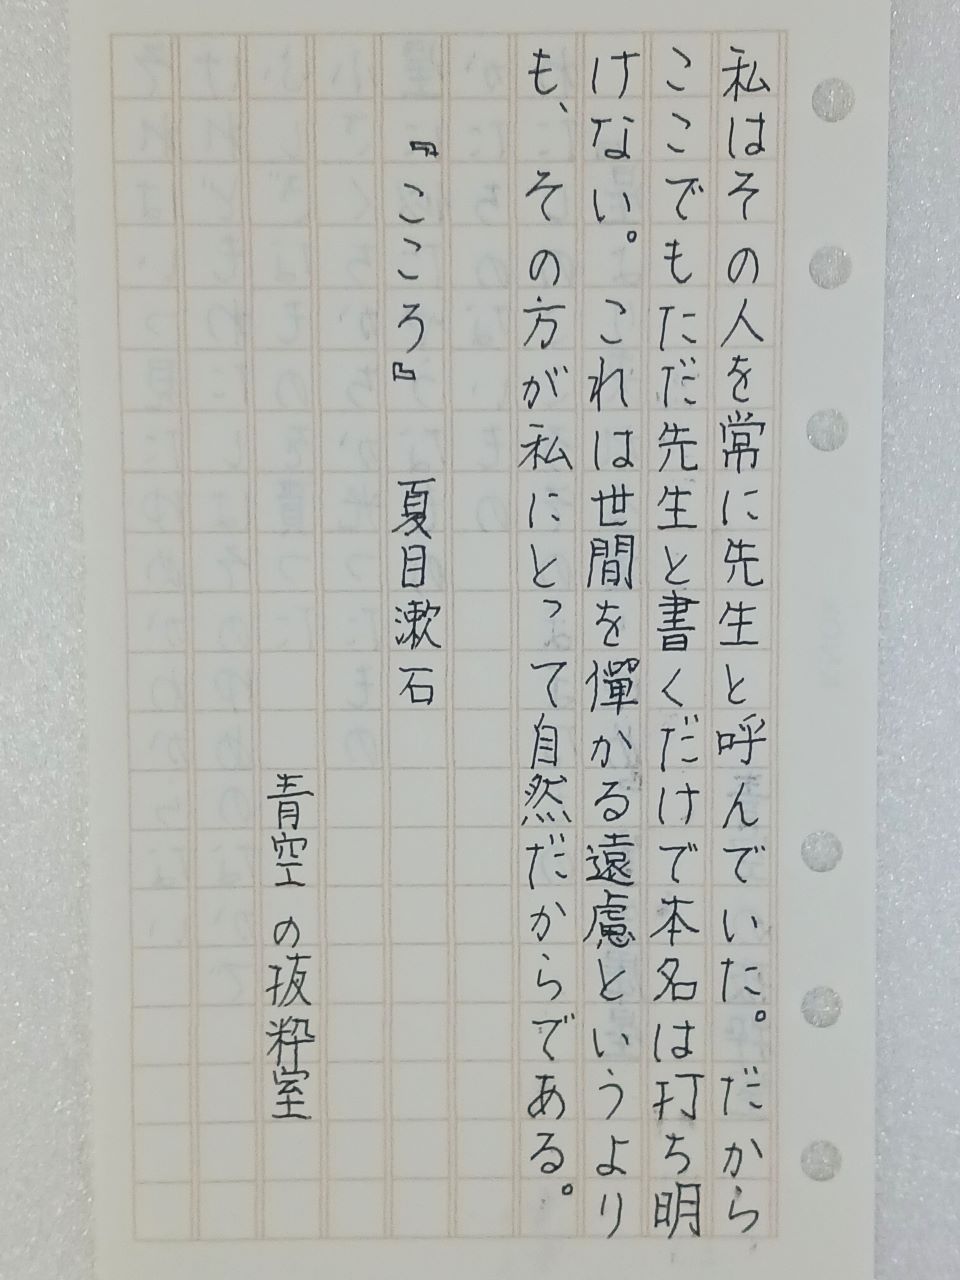 私はその人を常に先生と呼んでいた。だから
ここでもただ先生と書くだけで本名は打ち明
けない。これは世間を憚かる遠慮というより
も、その方が私にとって自然だからである。
『こころ』 夏目漱石
青空の抜粋室